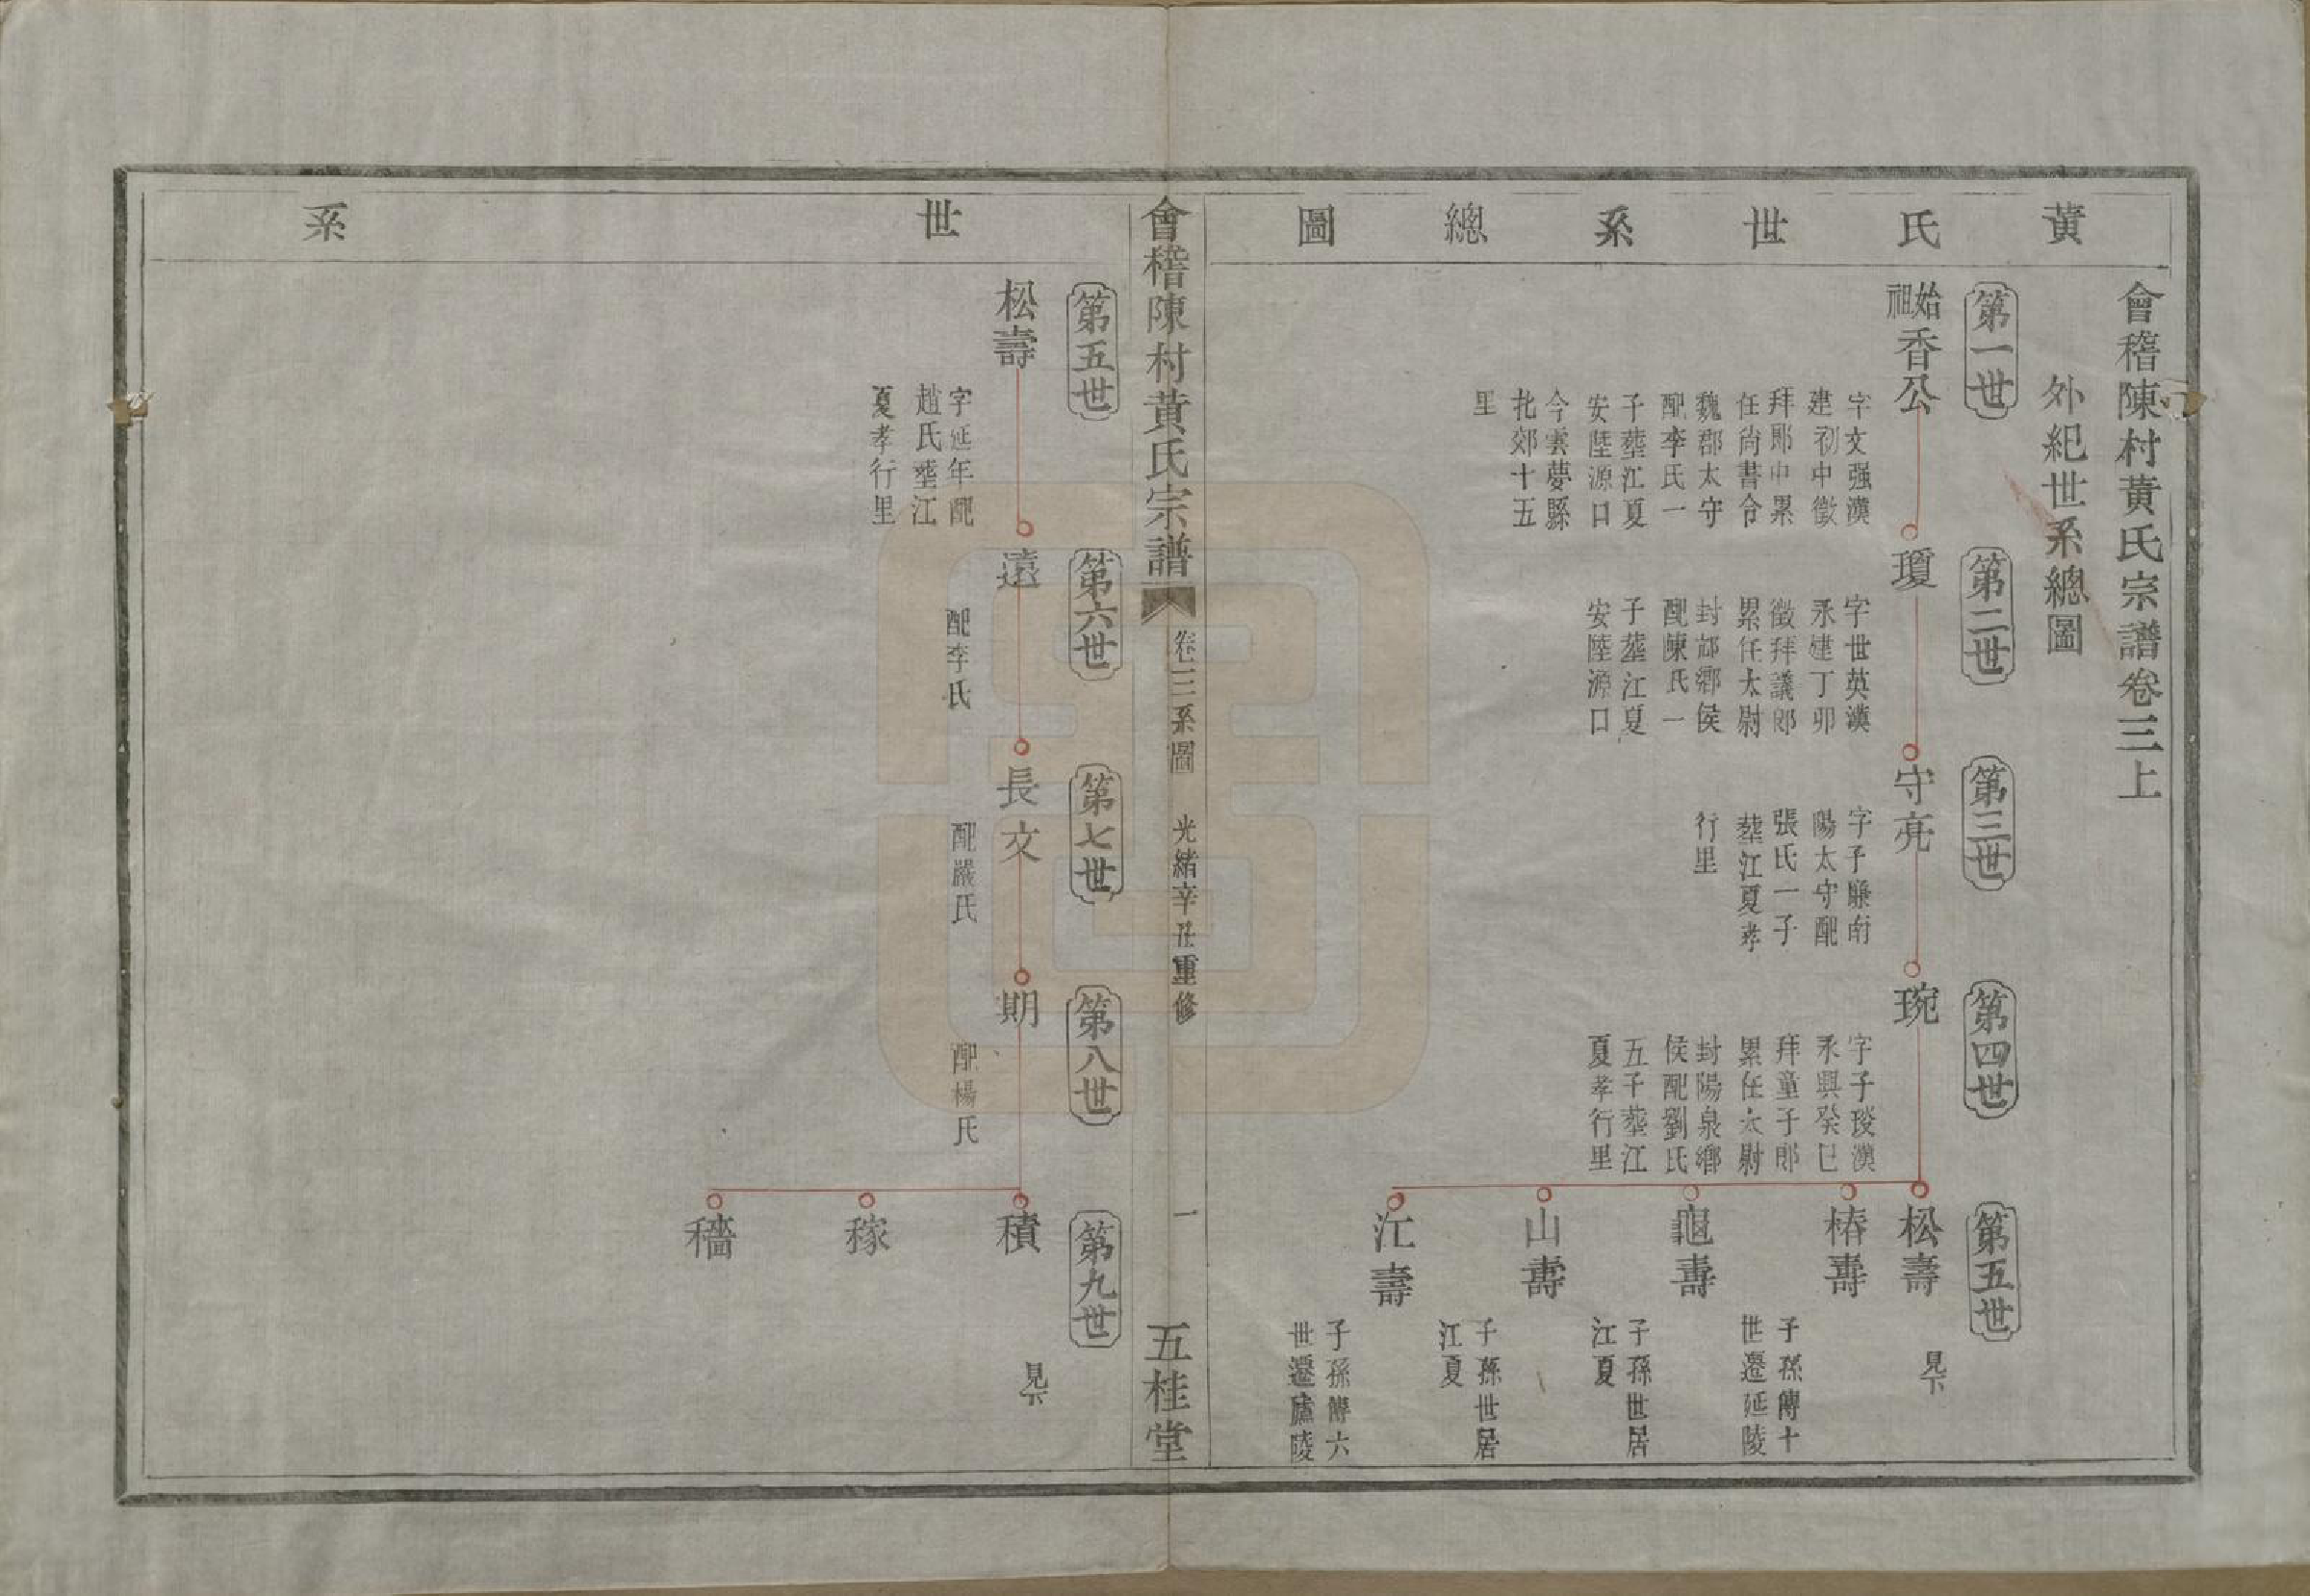 黃氏世系總圖
會稽陳村黃氏宗譜卷三上
外紀世系總圖
第一世
始祖香公
字文强漢
建初中徵
拜郎中累
任尚書令
魏郡太守
配李氏一
子塟江夏
安陸源口
今雲夢縣
北郊十五
里
第二世
瓊
字世英漢
永建丁卯
徵拜議郎
累任太尉
封邟鄉侯
配陳氏一
子塟江夏
安陸源口
第三世
守亮
字子賺南
陽太守配
張氏一子
塟江夏孝
行里
第四世
琬
字子琰漢
永興癸巳
拜童子郎
累任太尉
封陽泉鄉
侯配劉氏
五子塟江
夏孝行里
第五世
松壽
見下
椿壽
子孫傳十
世遷延陵
龜壽
子孫世居
江夏
山壽
子孫世居
江夏
江壽
子孫傳六
世遷廬陵
會稽陳村黃氏宗譜
卷三系圖
光緒辛丑重修
一
五桂堂
世系
第五世
松壽
字延年配
趙氏塟江
夏孝行里
第六世
遠
配李氏
第七世
長文
配嚴氏
第八世
期
配楊氏
第九世
積
見下
稼
穡